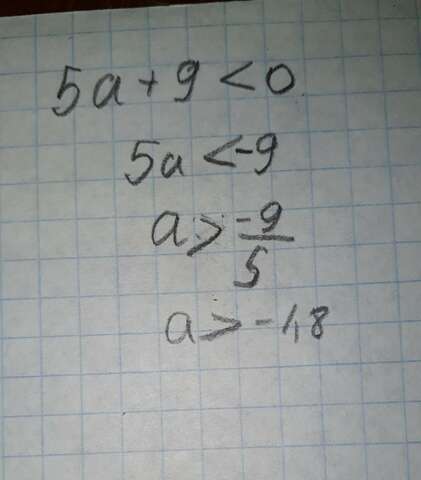 5a+9<0
5a<-9
a>-9/5
a>-1,8